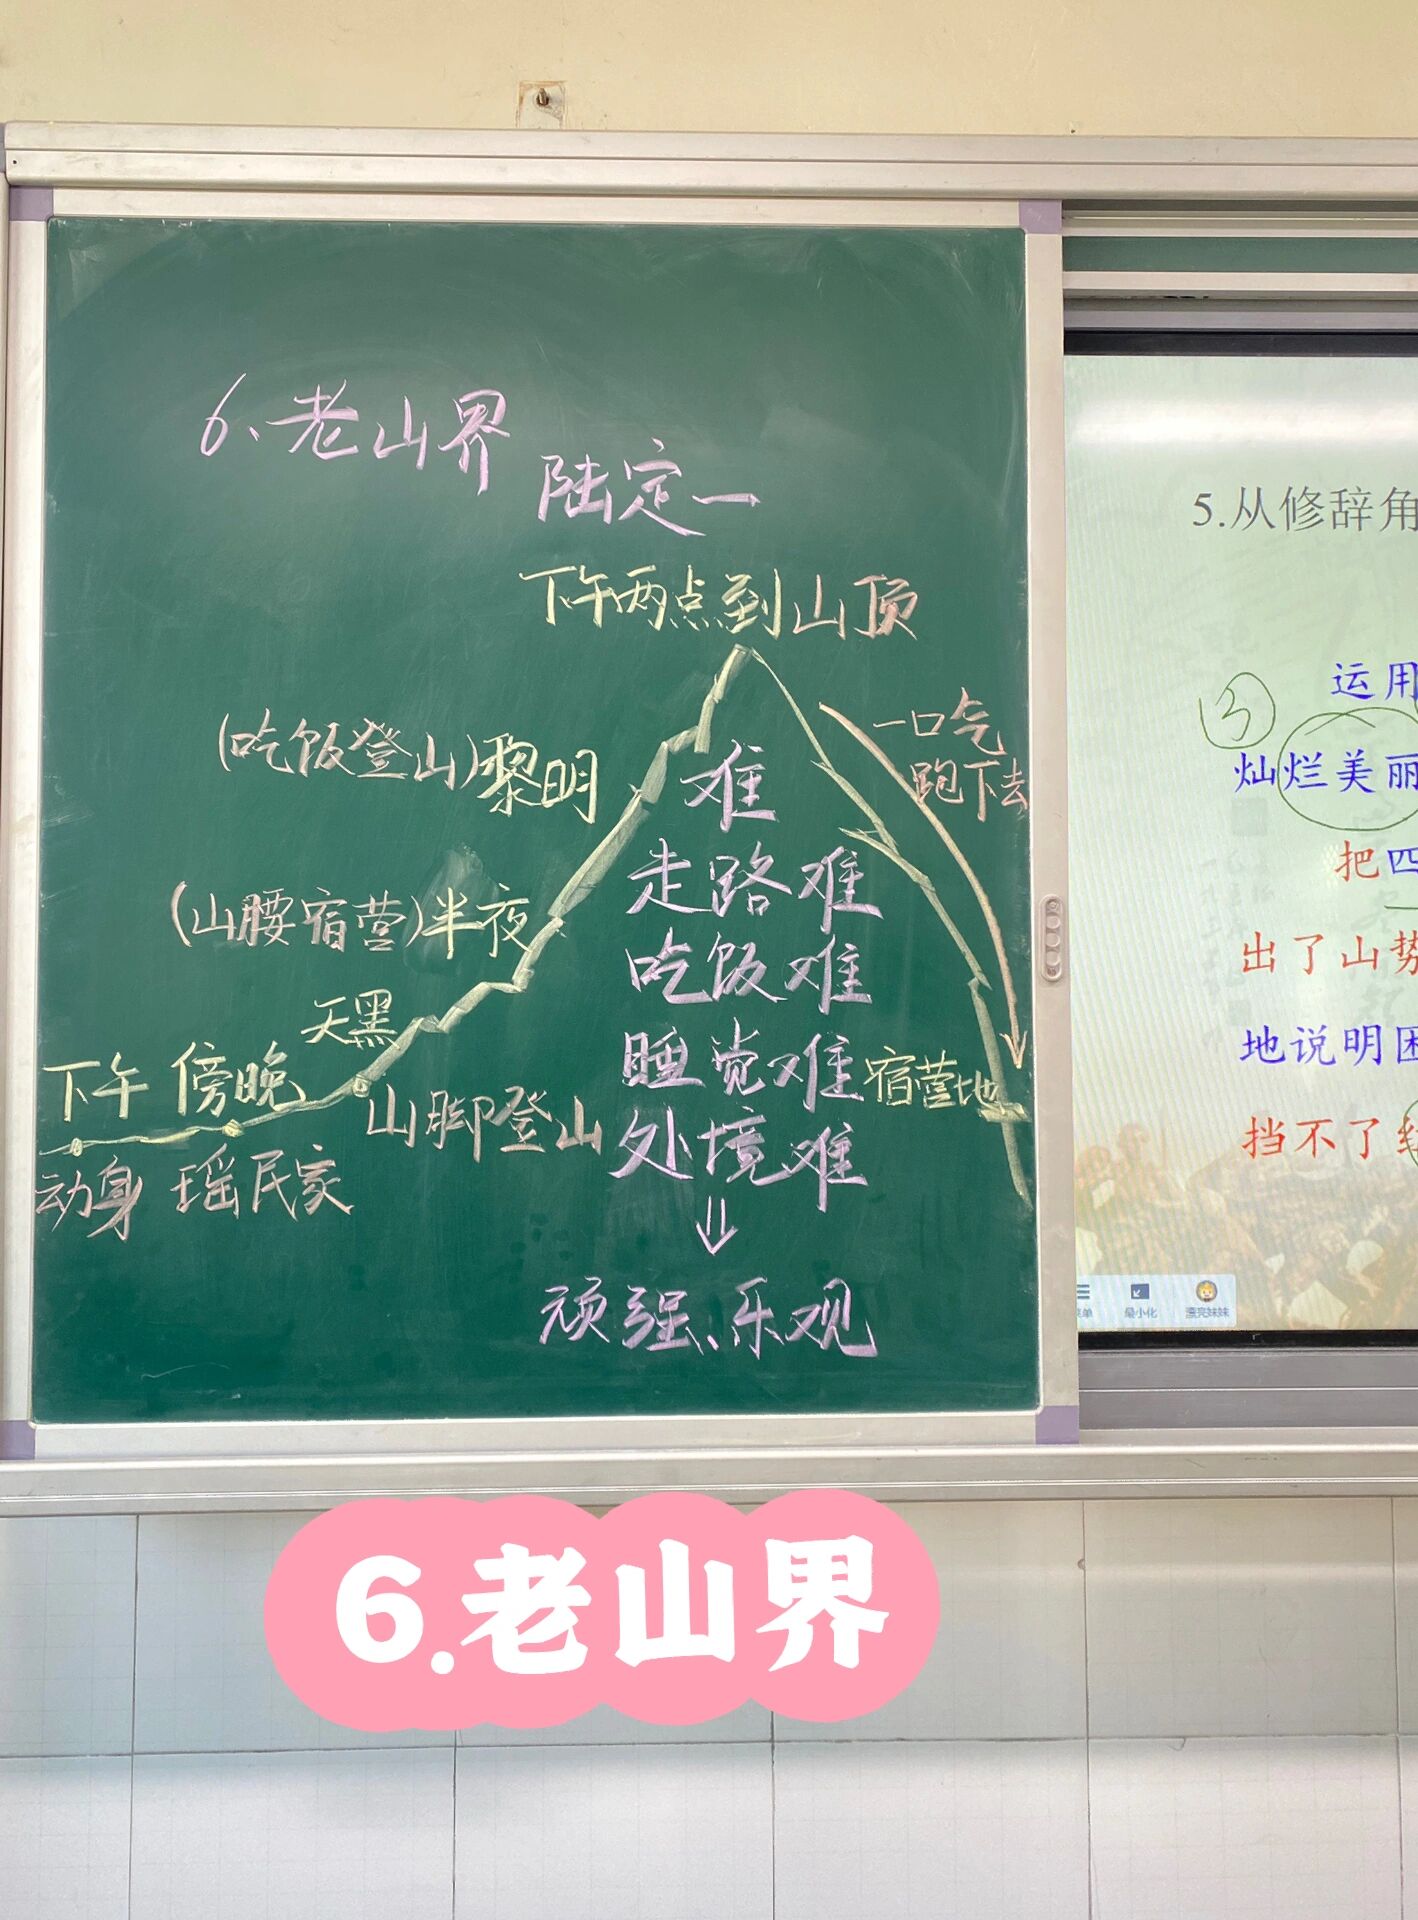 6、老山界
陆定一
下午两点到山顶
(吃饭登山)黎明
一口气
跑下去
(山腰宿营)半夜
天黑
下午 傍晚
动身 瑶民家
山脚登山
宿营地
难
走路难
吃饭难
睡觉难
处境难
⇓
顽强、乐观
5.从修辞角
③
运用
灿烂美丽
把四
出了山势
地说明困
挡不了
菜单 最小化 漂亮妹妹
6.老山界